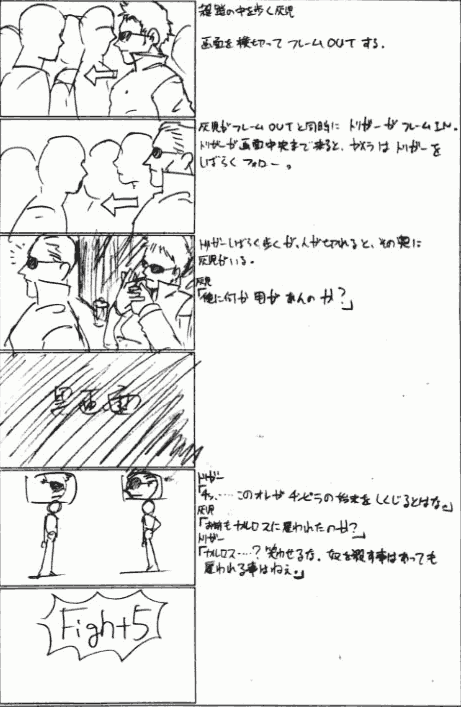 雑踏の中を歩く灰児
画面を横切ってフレームOUTする.
灰児がフレームOUTと同時にトリガーがフレームIN.
トリガーが画面中央まで来ると、カメラはトリガーを
しばらくフォロー。
トリガーしばらく歩くが、人が切れると、その奥に
灰児がいる。
灰児
「俺に何か用があんのか?」
黒画面
トリガー
「チッ…‥このオレがチンピラの始末をしくじるとはな。」
灰児
「お前もナルロスに雇われたのか?」
トリガー
「ナルロス…‥?笑わせるな、奴を殺す事はあっても
雇われる事はねぇ。」
Fight5